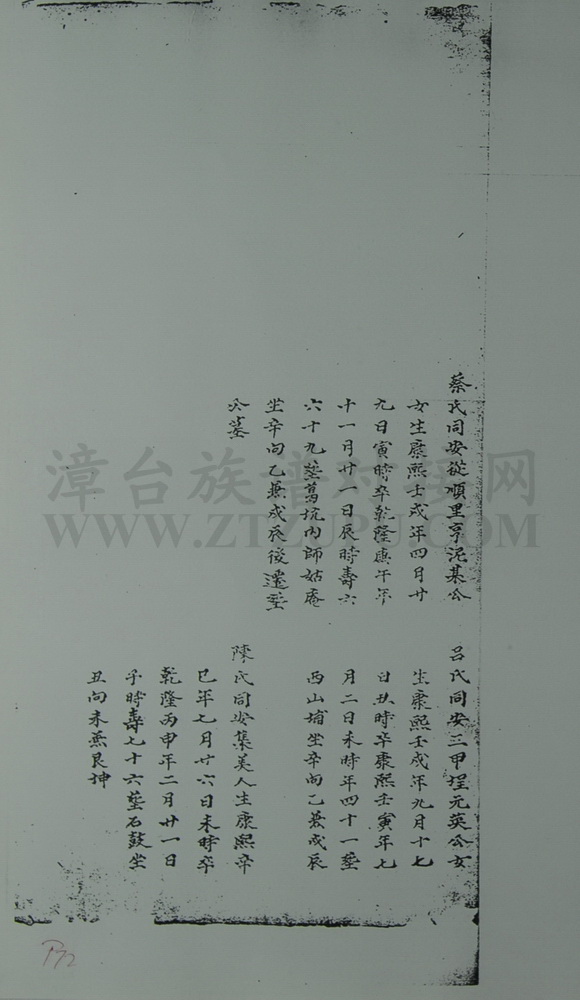 蔡氏同安從順里亨泥某公
女生康熙壬戌年四月廿
九日寅時卒乾隆庚午年
十一月廿一日辰時壽六
六十九塟萬坑内師姑庵
坐辛向乙兼戌辰後遷塟
公墓
呂氏同安三甲埕元英公女
生康熙壬戌年九月十七
日丑時卒康熙壬寅年七
月二日未時年四十一塟
西山埔坐辛向乙兼戌辰
陳氏同安集美人生康熙辛
巳年七月廿六日未時卒
乾隆丙申年二月廿一日
子時壽七十六塟石鼓坐
丑向未兼艮坤
漳台族谱对接网
WWW.ZTZUPU.COM
P72